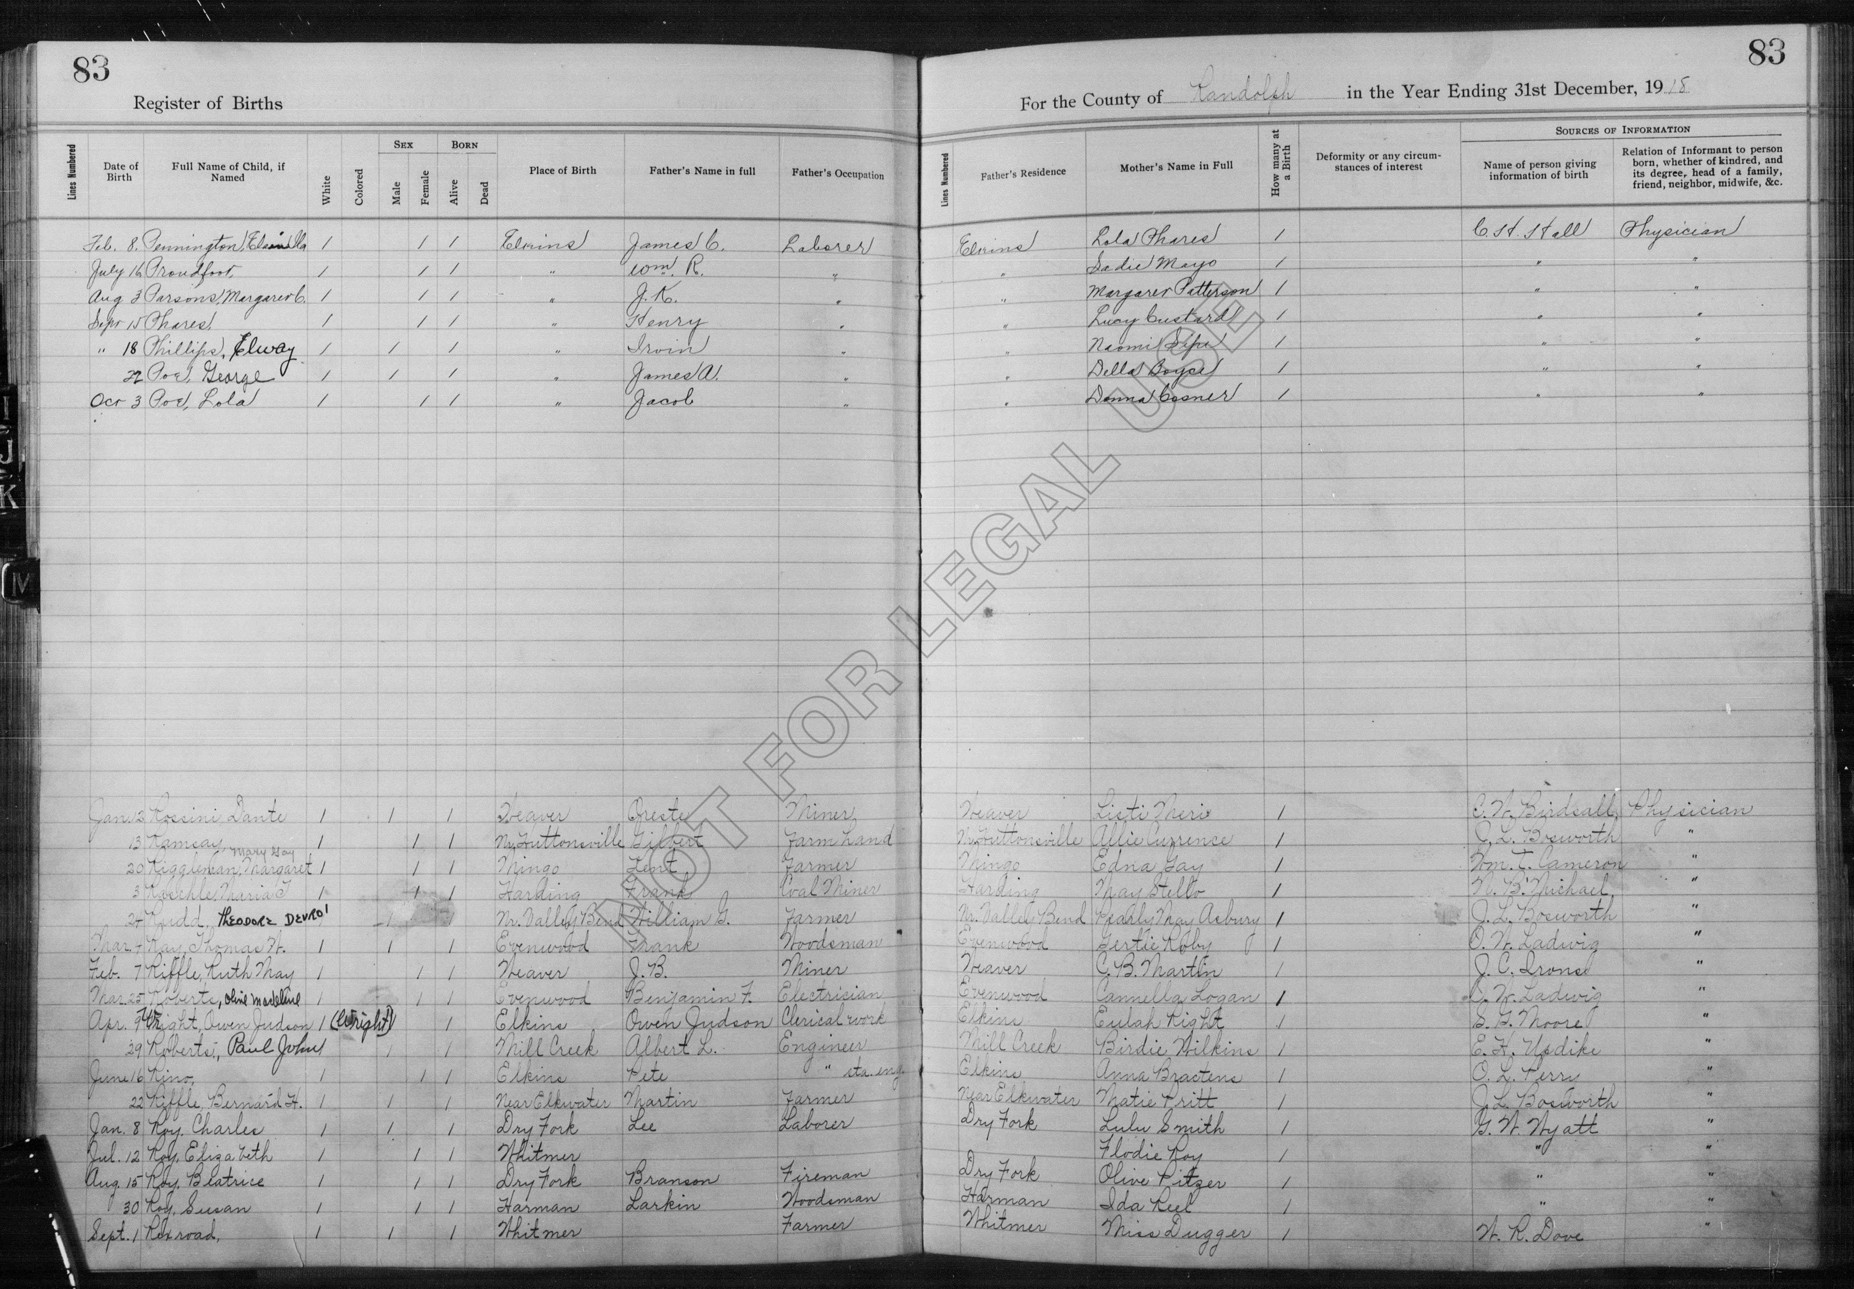 83
83
Register of Births
For the County of Randolph in the Year Ending 31st December, 1918
Lines Numbered
Date of Birth
Full Name of Child, if Named
White
Colored
Sex
Male
Female
Born
Alive
Dead
Place of Birth
Father's Name in full
Father's Occupation
Lines Numbered
Father's Residence
Mother's Name in Full
How many at a Birth
Deformity or any circumstances of interest
Sources of Information
Name of person giving information of birth
Relation of Informant to person born, whether of kindred, and its degree, head of a family, friend, neighbor, midwife, &c.
Feb. 8. Pennington, 1 1 1 Elkins James C. Laborer Elkins Lola Phares 1 C. H. Hall Physician
July 16 Proudfoot, 1 1 1 " Wm. R. " " Sadie Mayo 1 " "
Aug 3 Parsons, Margaret C. 1 1 1 " J. K. " " Margaret Patterson 1 " "
Sept 15 Phares, 1 1 1 " Henry " " Lucy Custard 1 " "
" 18 Phillips, Elway 1 1 1 " Irvin " " Naomi Sipe 1 " "
22 Poe, George 1 1 1 " James A. " " Della Boyce 1 " "
Oct 3 Poe, Lola 1 1 1 " Jacob " " Donna Cosner 1 " "
Jan. 12 Rossini, Dante 1 1 1 Weaver Oreste Miner Weaver Listi Neri 1 C. W. Birdsall, Physician
13 Ramsay 1 1 1 Nr. Huttonsville Gilbert Farm hand Nr. Huttonsville Allie Currence 1 J. L. Bosworth "
Mary Gay
20 Riggleman, Margaret 1 1 1 Mingo Kent Farmer Mingo Edna Gay 1 Wm. T. Cameron "
3 Maria 1 1 1 Harding Frank Coal Miner Harding May 1 N. B. Michael, "
27 Rudd, THEODORE 1 1 Nr. Valley Bend William G. Farmer Nr. Valley Bend Pearly May Asbury 1 J. L. Bosworth "
Mar. 7 Ray, Thomas W. 1 1 1 Evenwood Frank Woodsman Evenwood Gertie Roby 1 O. W. Ladwig "
Feb. 7 Riffle, Ruth May 1 1 1 Weaver J. B. Miner Weaver C. B. Martin 1 J. C. Irons "
Mar. 25 Roberts, Olive Madeline 1 1 1 Evenwood Benjamin F. Electrician Evenwood Cannella Logan 1 O. W. Ladwig "
Apr. 7 Right, Owen Judson 1 (Wright) 1 Elkins Owen Judson Clerical work Elkins Eulah Right 1 S. G. Moore "
29 Roberts, Paul John 1 1 1 Mill Creek Albert L. Engineer Mill Creek Birdie Wilkins 1 E. H. Updike "
June 16 Rino, 1 1 1 Elkins Pete " sta. eng. Elkins Anna Bractens 1 O. L. Perri "
22 Riffle, Bernard H. 1 1 1 Near Elkwater Martin Farmer Near Elkwater Matie Pritt 1 J. L. Bosworth "
Jan. 8 Roy, Charles 1 1 1 Dry Fork Lee Laborer Dry Fork Lulu Smith 1 G. W. Wyatt "
Jul. 12 Roy, Elizabeth 1 1 1 Whitmer Flodie Roy 1 " "
Aug. 15 Roy, Beatrice 1 1 1 Dry Fork Branson Fireman Dry Fork Olive Ritzer 1 " "
30 Roy, Susan 1 1 1 Harman Larkin Woodsman Harman Ida Keel 1 " "
Sept. 1 Rexroad, 1 1 1 Whitmer Farmer Whitmer Miss Dugger 1 W. R. Dove "
NOT FOR LEGAL USE